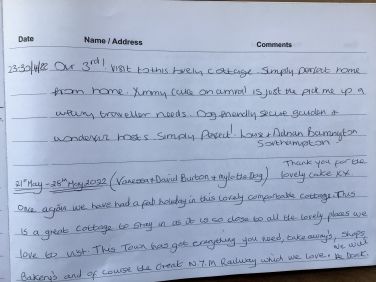 Date Name / Address Comments
23-30/4/22 Our 3rd! visit to this lovely cottage. Simply perfect home
from home. Yummy cake on arrival is just the pick me up a
weary traveller needs. Dog friendly secure garden +
wonderful hosts. Simply Perfect! Love + Adrian
Southampton
Thank you for the
lovely cake xx
21st May - 28th May 2022 (Vanessa + David Burton + Dog)
Once again we have had a fab holiday in this lovely comfortable cottage. This
is a great cottage to stay in as it is so close to all the lovely places we
love to visit. This Town has got everything you need, takeaway's, shops
Bakery's and of course the Great N.Y.M Railway which we love. We will be back.